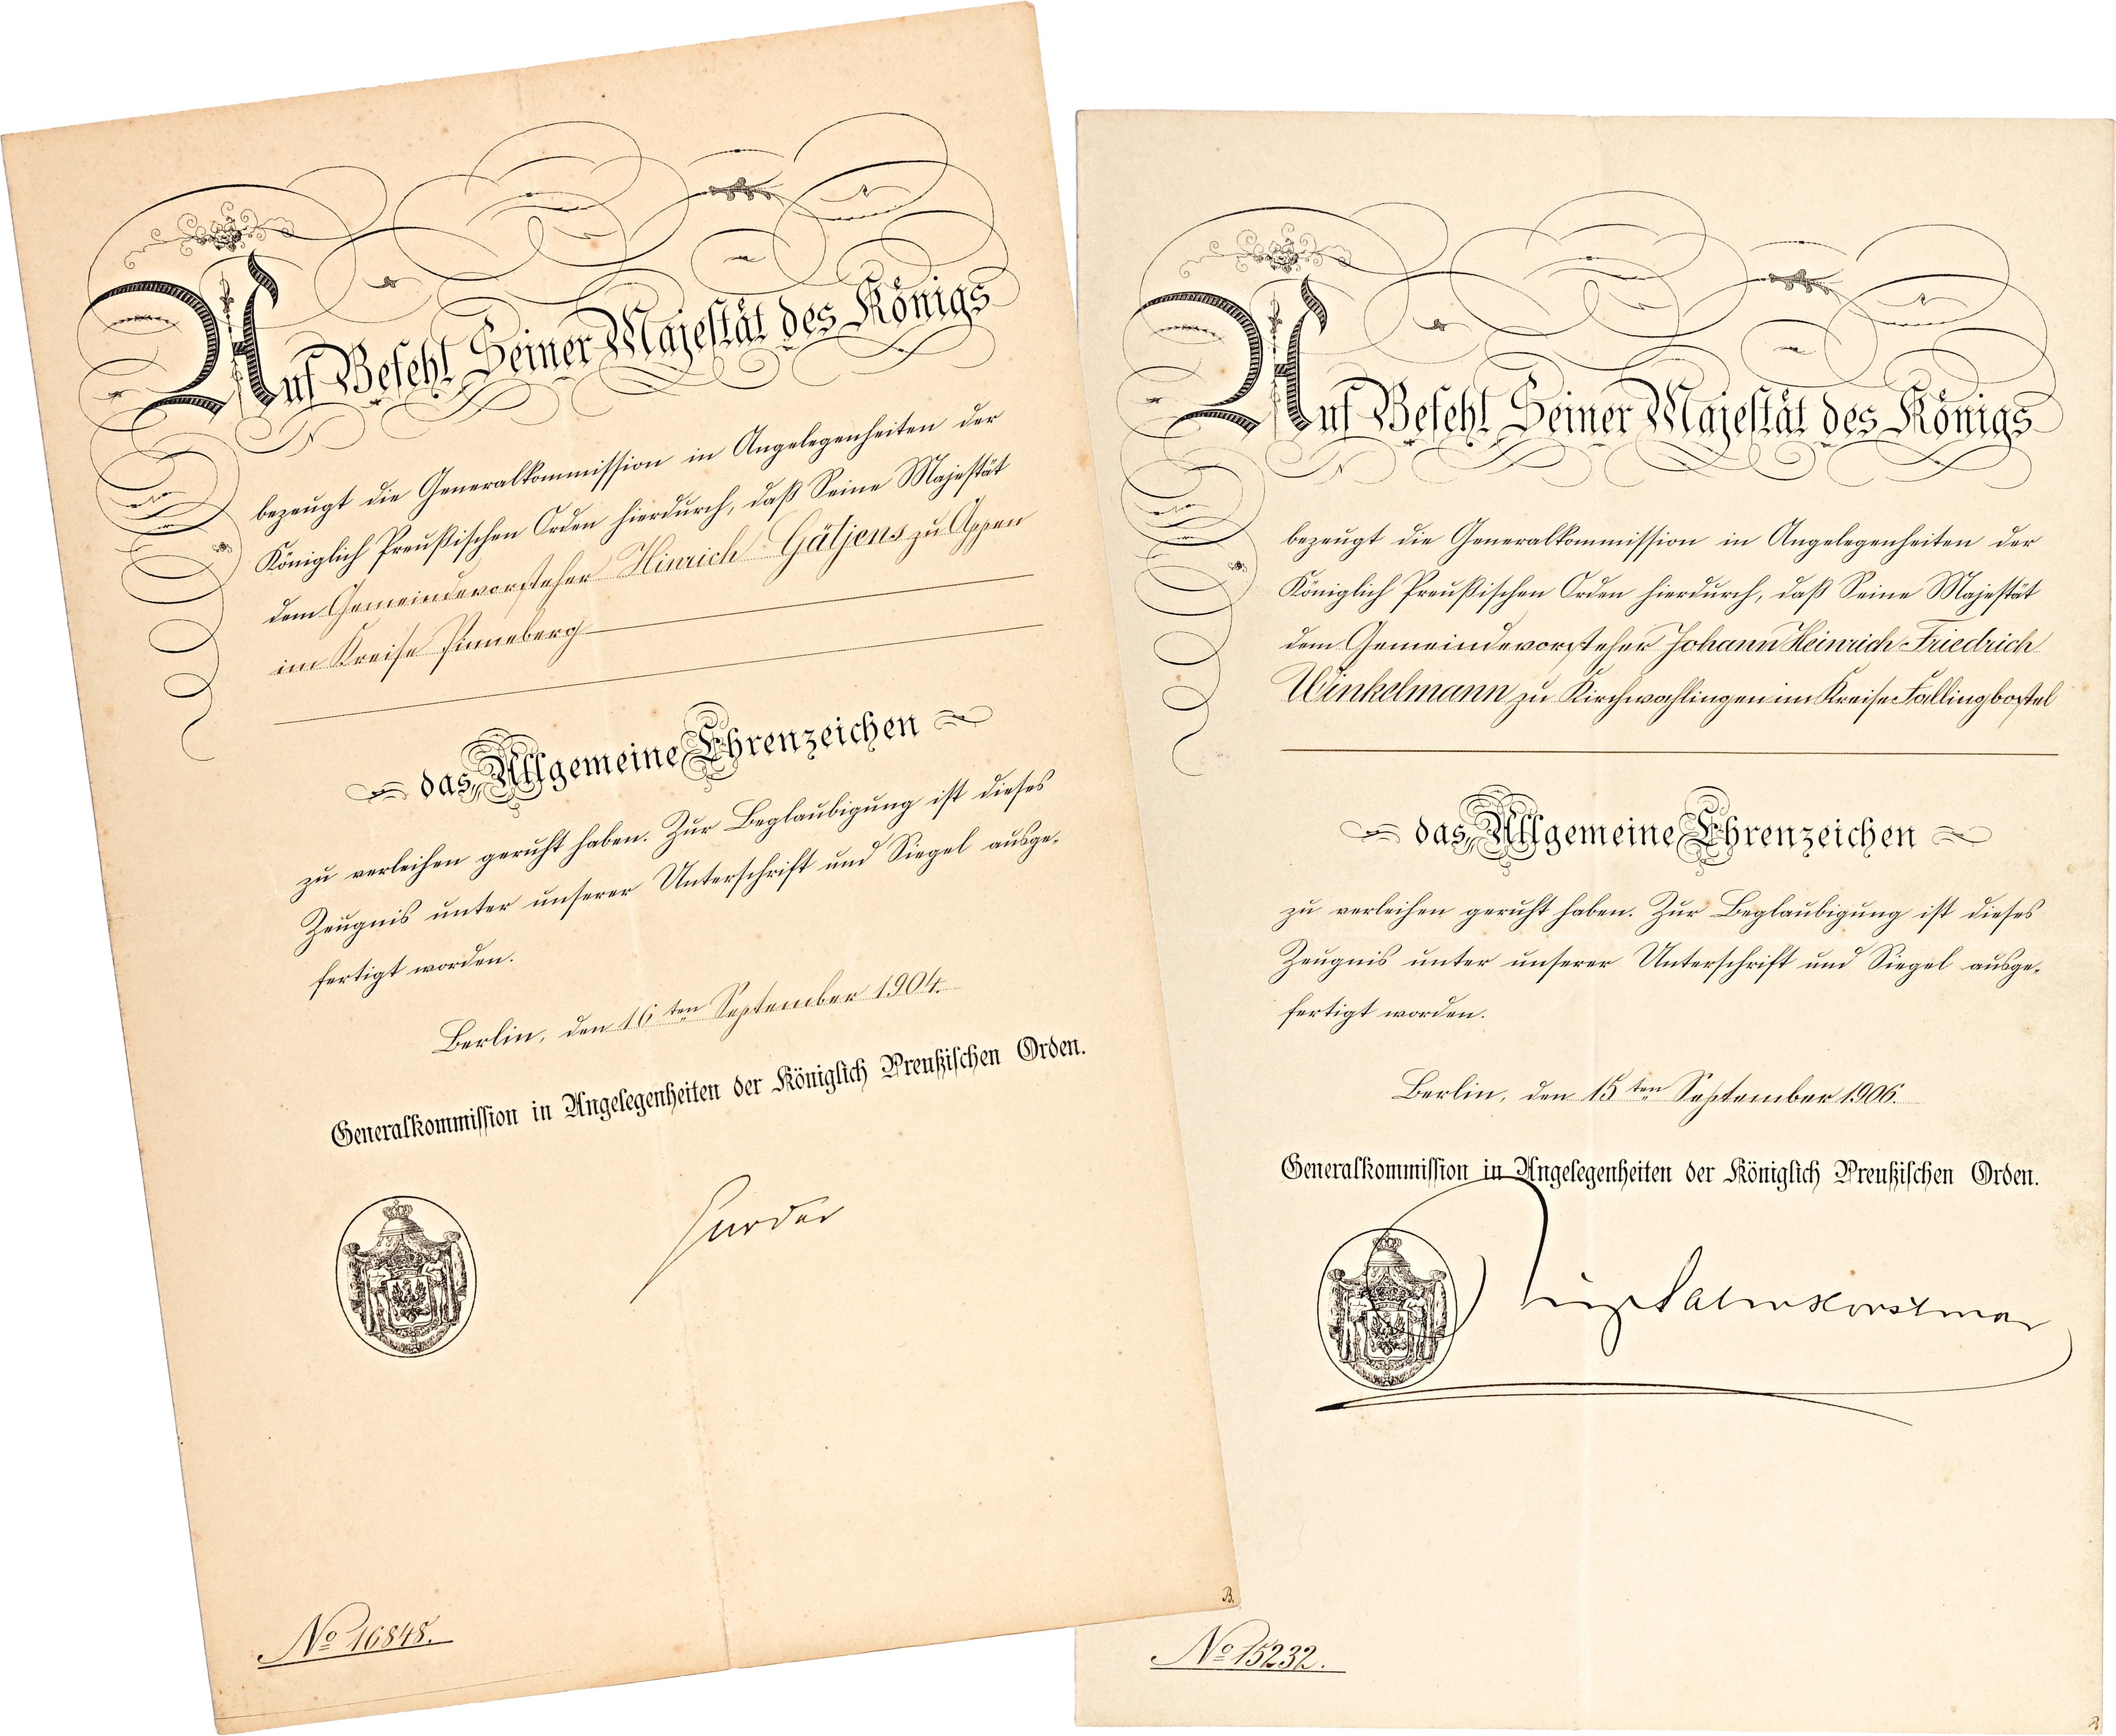 Auf Befehl Seiner Majestät des Königs
bezeugt die Generalkommission in Angelegenheiten der
Königlich Preußischen Orden hierdurch, daß Seine Majestät
dem Gemeindevorsteher Hinrich Gätjens zu Appen
im Kreise Pinneberg
das Allgemeine Ehrenzeichen
zu verleihen geruht haben. Zur Beglaubigung ist dieses
Zeugnis unter unserer Unterschrift und Siegel ausge-
fertigt worden.
Berlin, den 16ten September 1904.
Generalkommission in Angelegenheiten der Königlich Preußischen Orden.
No 16848.
B.
Auf Befehl Seiner Majestät des Königs
bezeugt die Generalkommission in Angelegenheiten der
Königlich Preußischen Orden hierdurch, daß Seine Majestät
dem Gemeindevorsteher Johann Heinrich Friedrich
Winkelmann zu Kirchwahlingen im Kreise Fallingbostel
das Allgemeine Ehrenzeichen
zu verleihen geruht haben. Zur Beglaubigung ist dieses
Zeugnis unter unserer Unterschrift und Siegel ausge-
fertigt worden.
Berlin, den 15ten September 1906.
Generalkommission in Angelegenheiten der Königlich Preußischen Orden.
Salm Horstmar
No 15232.
B